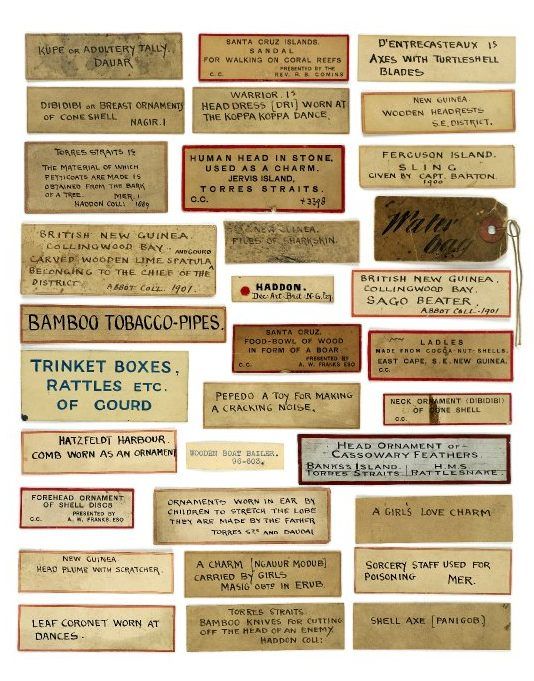 KUPE OR ADULTERY TALLY.
DAUAR
SANTA CRUZ ISLANDS.
SANDAL
FOR WALKING ON CORAL REEFS
PRESENTED BY THE
C.C. REV. R. B. COMINS
D'ENTRECASTEAUX IS
AXES WITH TURTLESHELL
BLADES
DIBIDIBI OR BREAST ORNAMENTS
OF CONE SHELL
NAGIR. I
WARRIOR. IS
HEAD DRESS [DRI] WORN AT
THE KOPPA KOPPA DANCE.
NEW GUINEA
WOODEN HEADRESTS
S.E. DISTRICT.
TORRES STRAITS IS
THE MATERIAL OF WHICH
PETTICOATS ARE MADE IS
OBTAINED FROM THE BARK
OF A TREE. MER. I
HADDON COLL: 1889
HUMAN HEAD IN STONE,
USED AS A CHARM.
JERVIS ISLAND,
TORRES STRAITS.
C.C. +3398
FERGUSON ISLAND.
SLING
GIVEN BY CAPT. BARTON.
1900
BRITISH NEW GUINEA.
COLLINGWOOD BAY. AND GOURD
CARVED WOODEN LIME SPATULA
BELONGING TO THE CHIEF OF THE
DISTRICT
ABBOT COLL. 1901.
NEW GUINEA.
FILES OF SHARKSKIN.
Water
HADDON.
Dec. Art. Brit. N. G.
BRITISH NEW GUINEA.
COLLINGWOOD BAY.
SAGO BEATER.
ABBOT COLL. 1901
BAMBOO TOBACCO-PIPES.
SANTA CRUZ.
FOOD-BOWL OF WOOD
IN FORM OF A BOAR
PRESENTED BY
C.C. A. W. FRANKS ESQ
LADLES
MADE FROM COCOA-NUT-SHELLS.
EAST CAPE, S.E. NEW GUINEA.
C.C.
TRINKET BOXES,
RATTLES ETC.
OF GOURD
PEPEDO A TOY FOR MAKING
A CRACKING NOISE.
NECK ORNAMENT (DIBIDIBI)
OF CONE SHELL
C.C.
HATZFELDT HARBOUR.
COMB WORN AS AN ORNAMENT
WOODEN BOAT BAILER.
96-603.
HEAD ORNAMENT OF
CASSOWARY FEATHERS.
BANKS'S ISLAND. H.M.S.
TORRES STRAITS RATTLESNAKE.
FOREHEAD ORNAMENT
OF SHELL DISCS
PRESENTED BY
C.C. A. W. FRANKS. ESQ
ORNAMENTS WORN IN EAR BY
CHILDREN TO STRETCH THE LOBE
THEY ARE MADE BY THE FATHER
TORRES STS AND DAUDAI
A GIRL'S LOVE CHARM
NEW GUINEA
HEAD PLUME WITH SCRATCHER.
A CHARM [NGAUUR MODUB]
CARRIED BY GIRLS
MASIG OBTD IN ERUB.
SORCERY STAFF USED FOR
POISONING MER.
LEAF CORONET WORN AT
DANCES.
TORRES STRAITS.
BAMBOO KNIVES FOR CUTTING
OFF THE HEAD OF AN ENEMY.
HADDON COLL:
SHELL AXE [PANIGOB]